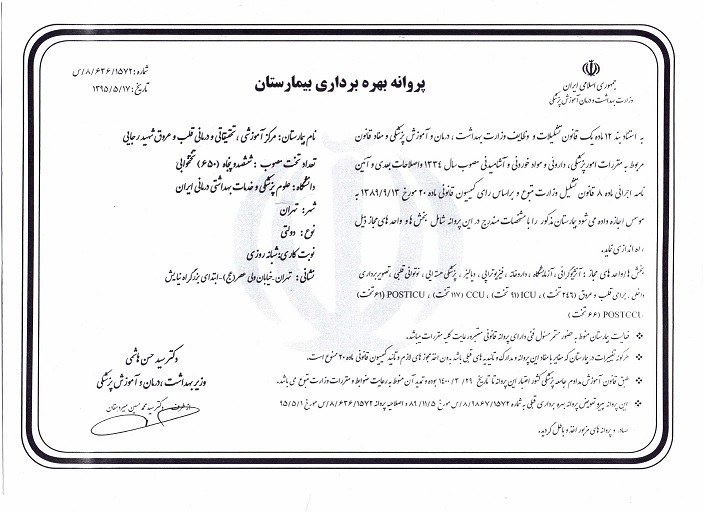 جمهوری اسلامی ایران
وزارت بهداشت و درمان و آموزش پزشکی
پروانه بهره برداری بیمارستان
شماره: ۸/۶۳۶/۱۵۷۲/س
تاریخ: ۱۳۹۵/۵/۱۷
به استناد بند ۱۲ ماده یک قانون تشکیلات و وظایف وزارت بهداشت ، درمان و آموزش پزشکی و مفاد قانون
مربوط به مقررات امور پزشکی، دارویی و مواد خوردنی و آشامیدنی مصوب سال ۱۳۳۴ واصلاحات بعدی و آئین
نامه اجرائی ماده ۸ قانون تشکیل وزارت متبوع و براساس رای کمیسیون قانونی ماده ۲۰ مورخ ۱۳۸۹/۹/۱۳ به
موسس اجازه داده می شود بیمارستان مذکور را با مشخصات مندرج در این پروانه شامل بخش ها و واحدهای مجاز ذیل
راه اندازی نماید.
نام بیمارستان: مرکز آموزشی ، تحقیقاتی و درمانی قلب و عروق شهید رجایی
تعداد تخت مصوب : ششصد و پنجاه (۶۵۰) تختخوابی
دانشگاه: علوم پزشکی و خدمات بهداشتی درمانی ایران
شهر: تهران
نوع: دولتی
نوبت کاری: شبانه روزی
نشانی: تهران-خیابان ولی عصر(عج)-ابتدای بزرگراه نیایش
بخش ها/واحدهای مجاز : آنژیوگرافی ، آزمایشگاه ، داروخانه ، فیزیوتراپی ، دیالیز ، پزشکی هسته ایی ، نوتوانی قلبی ،تصویربرداری
داخلی ، جراحی قلب و عروق (۲۴۶ تخت) ، ICU (۹۱ تخت) ، CCU (۱۷۷ تخت) ، POSTICU (۶۱ تخت)
POSTCCU (۶۶ تخت)
❖ فعالیت بیمارستان منوط به حضور مستمر مسئول فنی دارای پروانه قانونی معتبر و رعایت کلیه مقررات میباشد.
❖ هرگونه تغییرات در بیمارستان که مغایر با مفاد این پروانه و مدارک و تاییدیه های قبلی باشد بدون اخذ مجوزهای لازم و تائید کمیسیون قانونی ماده ۲۰ ممنوع است.
❖ طبق قانون آموزش مداوم جامعه پزشکی کشور اعتبار این پروانه تا تاریخ ۱۴۰۰/۳/۲۹ بوده و تمدید آن منوط به رعایت ضوابط و مقررات وزارت متبوع می باشد.
❖ این پروانه پیرو تعویض پروانه بهره برداری قبلی به شماره ۸/۹۸۶۷/۱۵۷۲/س مورخ ۸۹/۱۱/۵ و اصلاحیه پروانه ۸/۶۳۶/۱۵۷۲/س مورخ ۹۵/۵/۱
صادر و پروانه های مزبور اخذ و باطل گردید.
دکتر سید حسن هاشمی
وزیر بهداشت ،درمان و آموزش پزشکی
از طرف دکتر سید محمد حسین